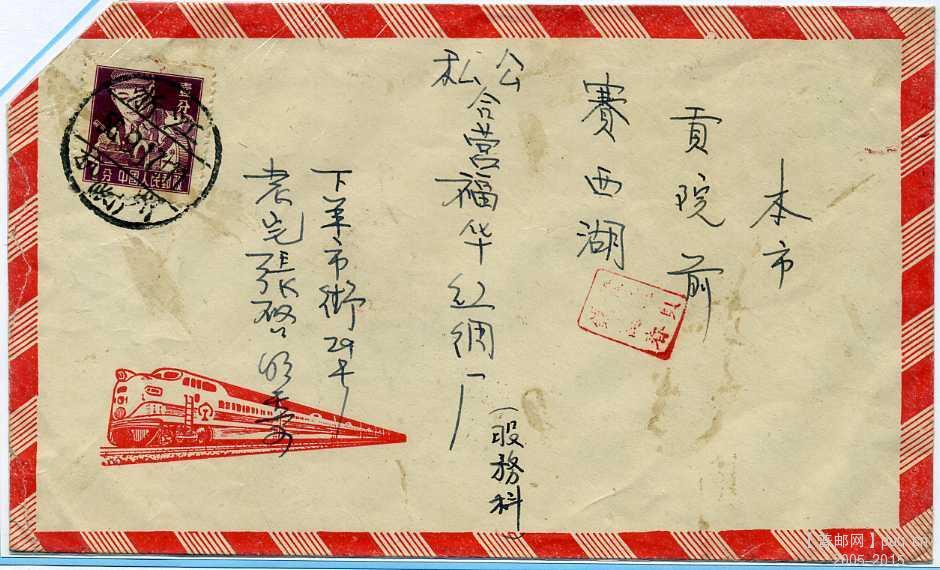 本市
貢院前
賽西湖
公私合营福华红绸厂
（服務科）
下羊市街29号
袁宅張啓明寄
壹分
1分 中国人民邮政
【淘邮网】puu.cn
2005-2015